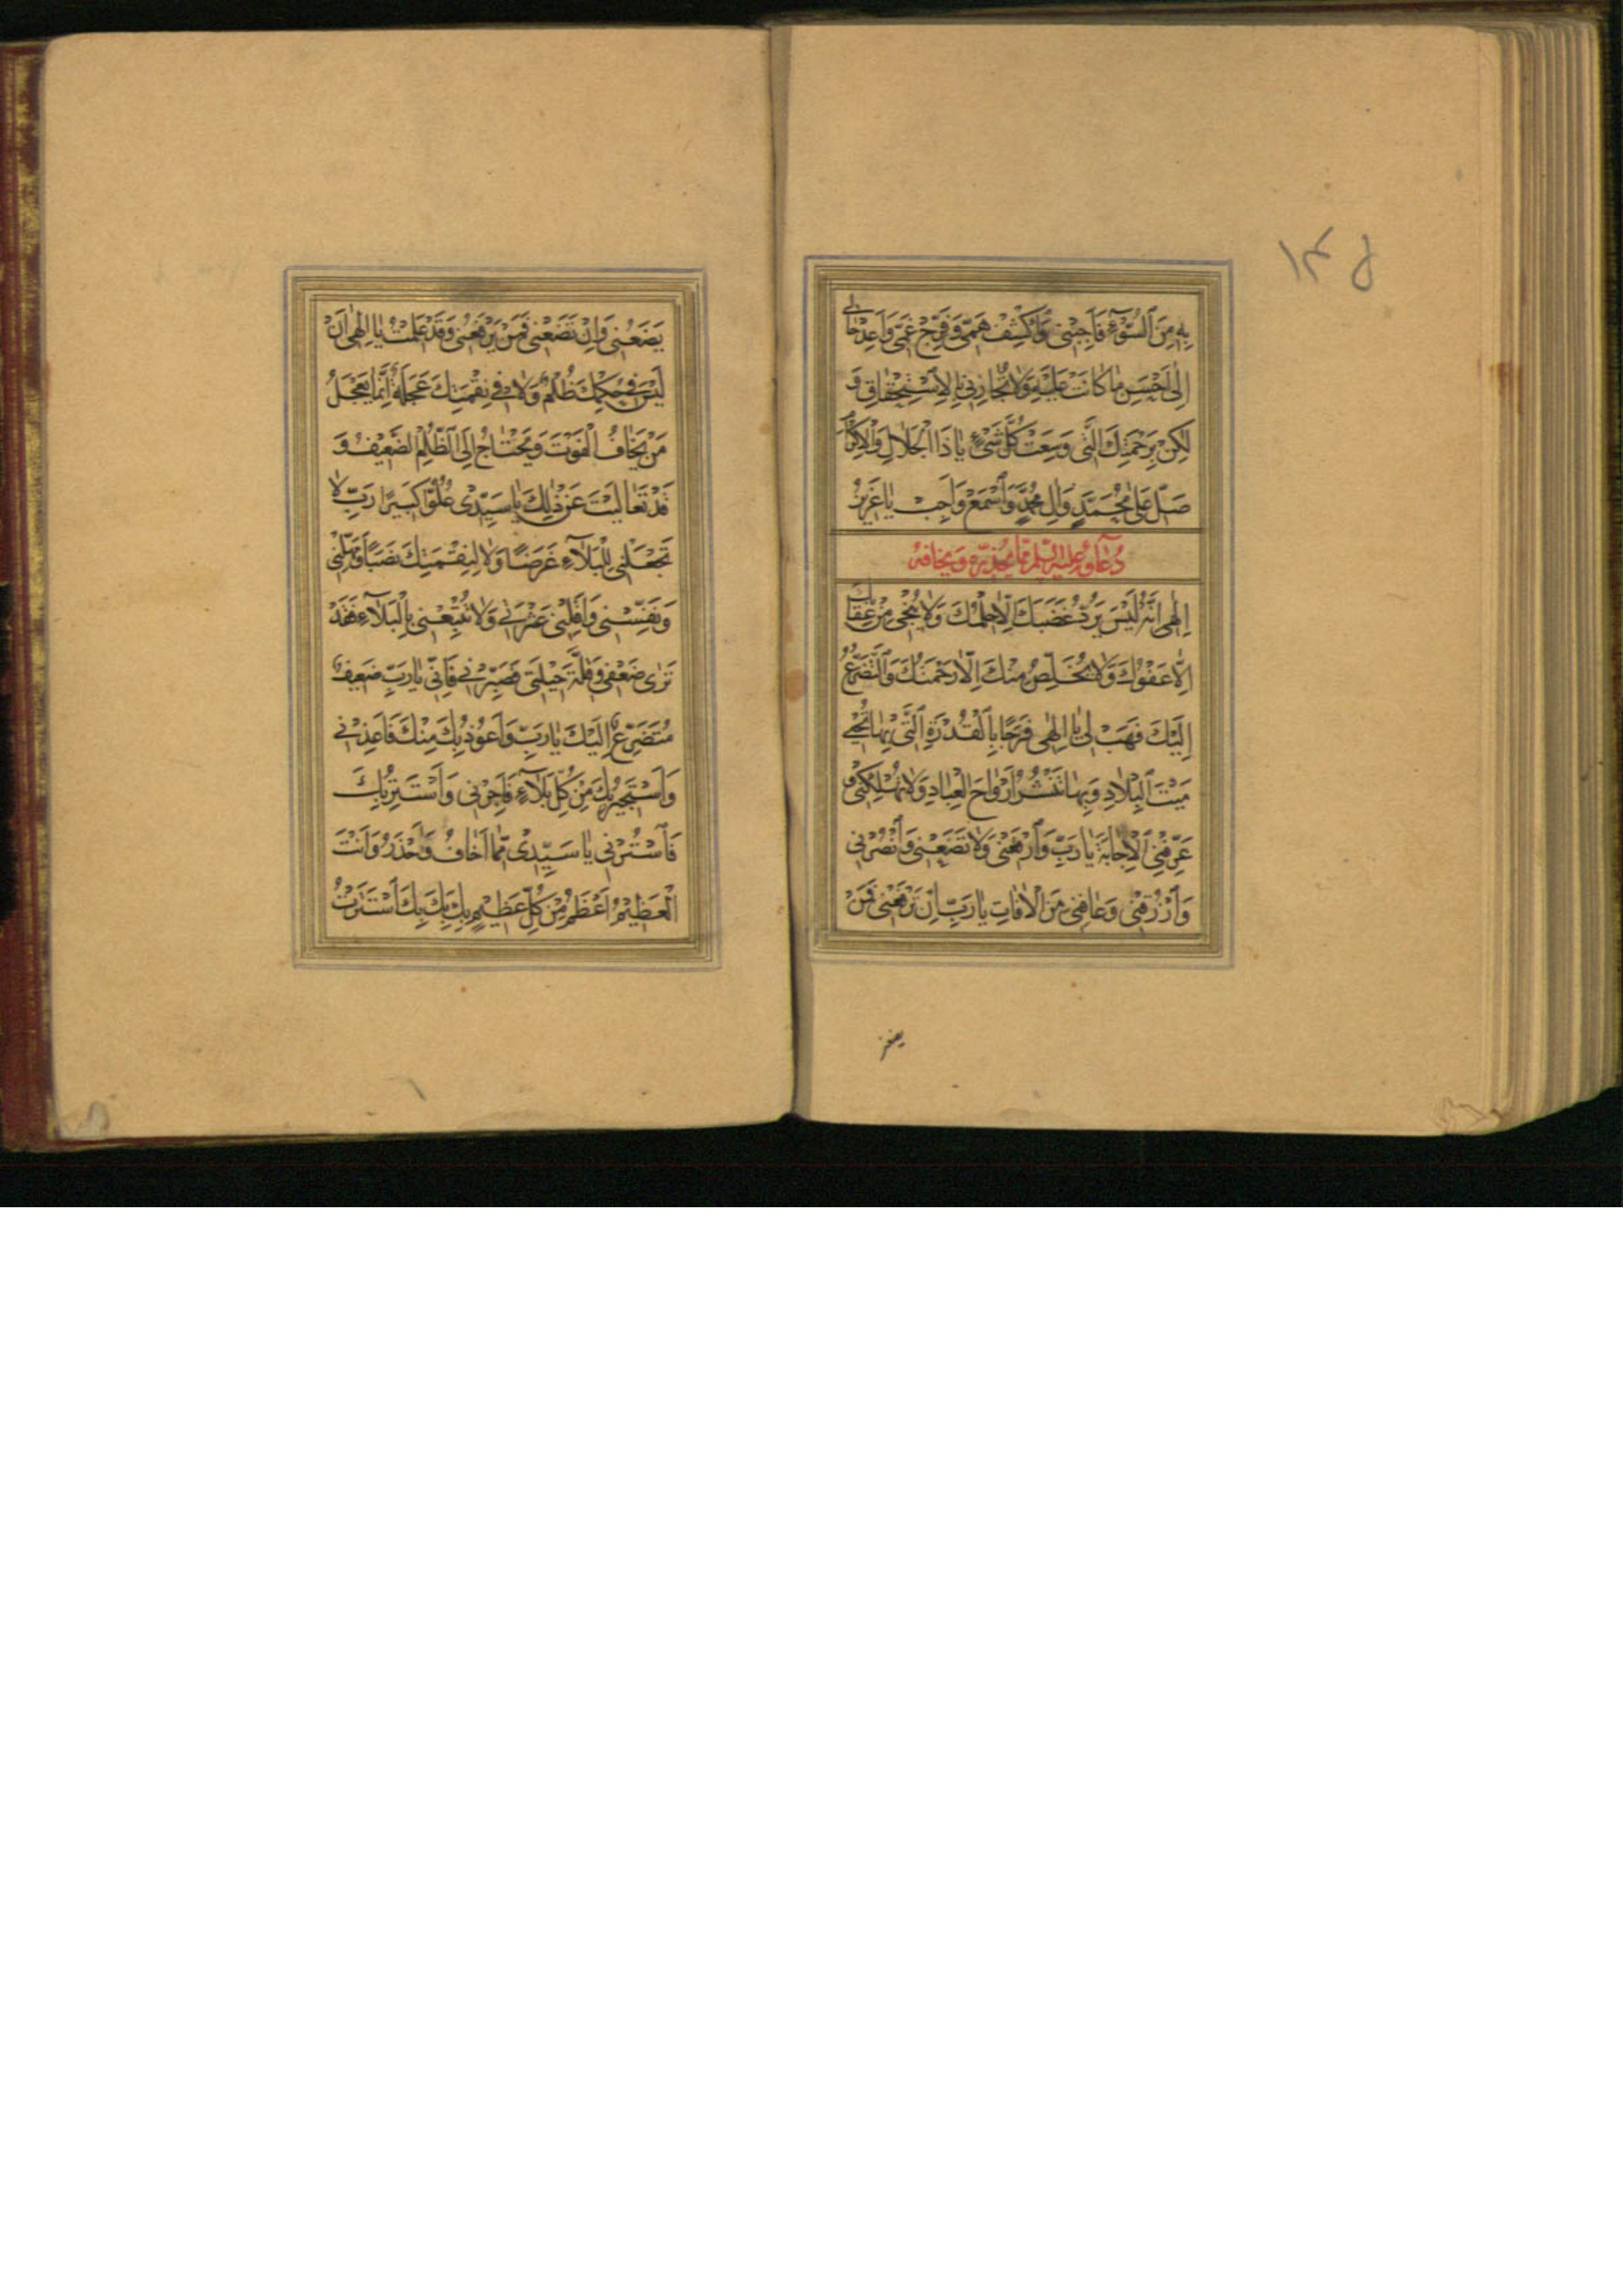 ١٤٥
بِهِ مِنَ ٱلسُّوۤءِ فَاَجِبْنى وَاكْشِفْ هَمّى وَفَرِّجْ غَمّى وَاَعِدْ حٰالى
اِلٰى اَحْسَنِ مٰا كٰانَتْ عَلَيْهِ وَلاٰ تُجٰازِنى بِالْاِسْتِحْقٰاقِ وَ
لٰكِنْ بِرَحْمَتِكَ الَّتى وَسِعَتْ كُلَّ شَىْءٍ يٰا ذَا الْجَلاٰلِ وَالْاِكْرٰامِ
صَلِّ عَلٰى مُحَمَّدٍ وَاٰلِ مُحَمَّدٍ وَاسْمَعْ وَاَجِبْ يٰا عَزيزُ
دُعاۤؤُهُ عليه السّلم مّما يحذره ويخافه
اِلٰهى اِنَّهُ لَيْسَ يَرُدُّ غَضَبَكَ اِلّاٰ حِلْمُكَ وَلاٰ يُنْجى مِنْ عِقٰابِكَ
اِلّاٰ عَفْوُكَ وَلاٰ يُخَلِّصُ مِنْكَ اِلّاٰ رَحْمَتُكَ وَالتَّضَرُّعُ
اِلَيْكَ فَهَبْ لى يٰا اِلٰهى فَرَجًا بِالْقُدْرَةِ الَّتى بِهٰا تُحْيى
مَيْتَ الْبِلاٰدِ وَبِهٰا تَنْشُرُ اَرْوٰاحَ الْعِبٰادِ وَلاٰ تُهْلِكْنى وَ
عَرِّفْنِى الْاِجٰابَةَ يٰا رَبِّ وَارْفَعْنى وَلاٰ تَضَعْنى وَانْصُرْنى
وَارْزُقْنى وَعٰافِنى مِنَ الْاٰفٰاتِ يٰا رَبِّ اِنْ تَرْفَعْنى فَمَنْ
يضعنى
يَضَعُنى وَاِنْ تَضَعْنى فَمَنْ يَرْفَعُنى وَقَدْ عَلِمْتُ يٰا اِلٰهى اَنْ
لَيْسَ فى حُكْمِكَ ظُلْمٌ وَلاٰ فى نِقْمَتِكَ عَجَلَةٌ اِنَّمٰا يَعْجَلُ
مَنْ يَخٰافُ الْفَوْتَ وَيَحْتٰاجُ اِلَى الظُّلْمِ الضَّعيفُ وَ
قَدْ تَعٰالَيْتَ عَنْ ذٰلِكَ يٰا سَيِّدى عُلُوًّا كَبيرًا رَبِّ لاٰ
تَجْعَلْنى لِلْبَلاٰۤءِ غَرَضًا وَلاٰ لِنِقْمَتِكَ نَصَبًا وَمَهِّلْنى
وَنَفِّسْنى وَاَقِلْنى عَثْرَتى وَلاٰ تُتْبِعْنى بِالْبَلاٰۤءِ فَقَدْ
تَرٰى ضَعْفى وَقِلَّةَ حيلَتى فَصَبِّرْنى فَاِنّى يٰا رَبِّ ضَعيفٌ
مُتَضَرِّعٌ اِلَيْكَ يٰا رَبِّ وَاَعُوذُ بِكَ مِنْكَ فَاَعِذْنى
وَاَسْتَجيرُ بِكَ مِنْ كُلِّ بَلاٰۤءٍ فَاَجِرْنى وَاَسْتَتِرُ بِكَ
فَاسْتُرْنى يٰا سَيِّدى مِمّٰا اَخٰافُ وَاَحْذَرُ وَاَنْتَ
الْعَظيمُ اَعْظَمُ مِنْ كُلِّ عَظيمٍ بِكَ بِكَ بِكَ اسْتَتَرْتُ